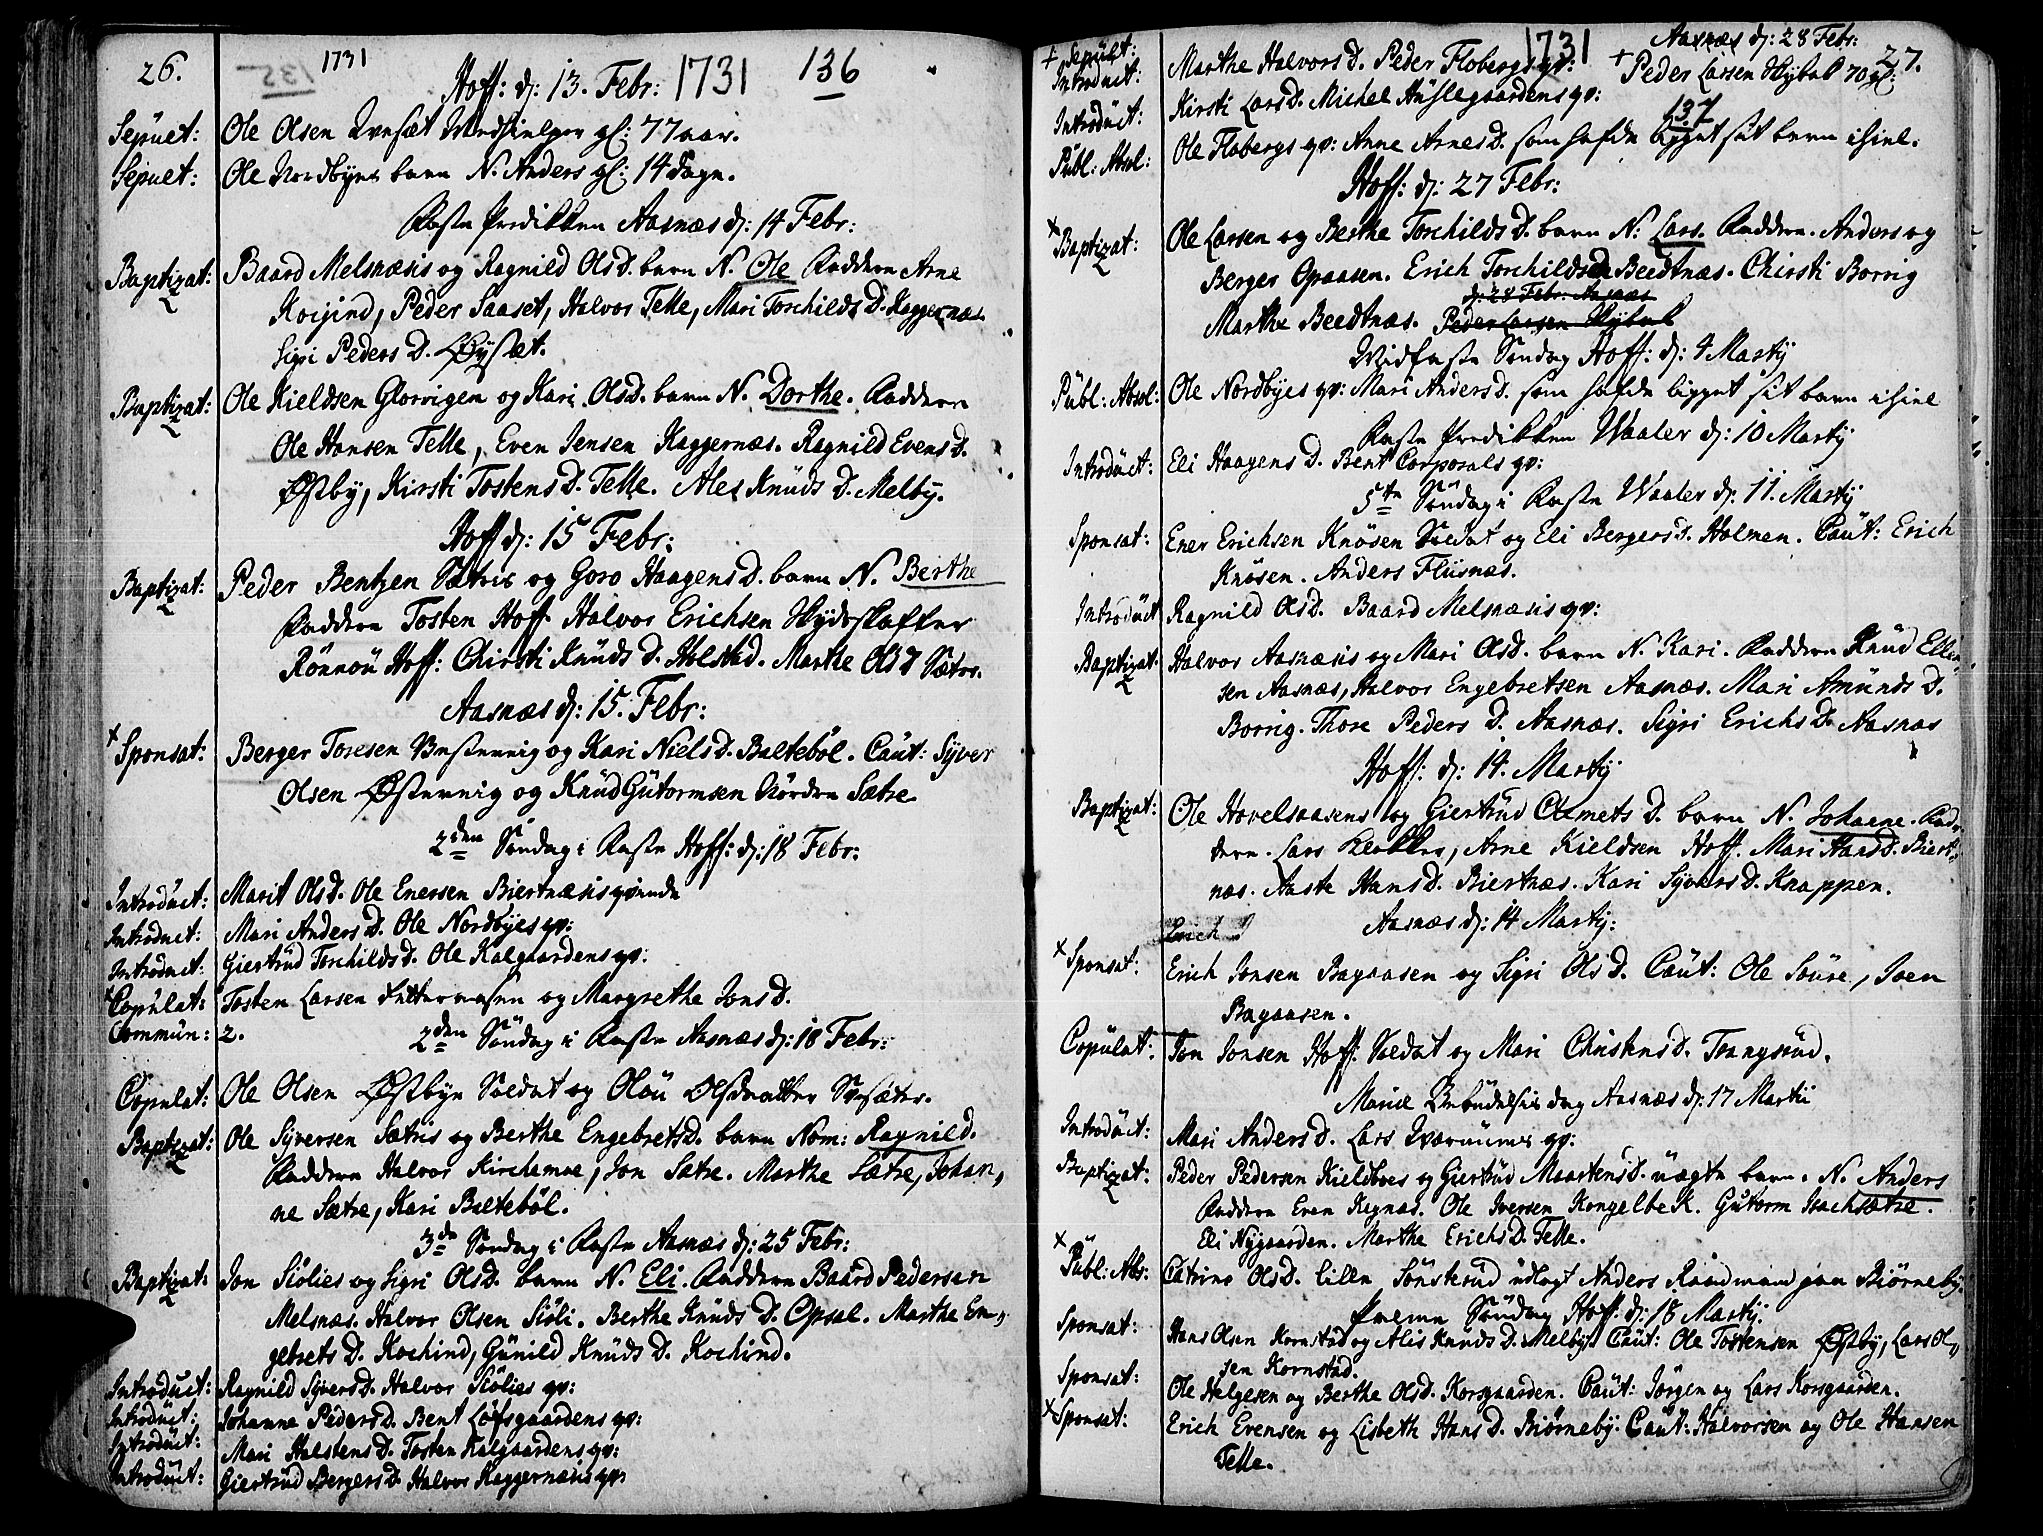 26. 1731 136
Hoff: dj: 13. Febr: 1731
Sepult: Ole Olsen gl: 77 aar.
Sepult: Ole Nordbyes barn N. Anders gl: 14 dage.
Faste Predikken Aasnæs dj: 14 Febr:
Baptizat: Baard Melsnæsis og Ragnild OlsD. barn N. Ole Faddere Arne
Koijind, Peder Saaset, Halvor Telle, Mari TorchildsD. Kaggernæs
Sigri PedersD. Øÿsæt.
Baptizat: Ole Kieldsen Glorvigen og Kari OlsD. barn N. Dorthe. Faddere
Ole Hansen Telle, Even Jensen Kaggernæs. Ragnild EvensD.
Østby, Kirsti TostensD. Telle. Ales KnüdsD. Melbÿ.
Hoff dj: 15 Febr:
Baptizat: Peder Bentzen Sætris og Goro HaagensD. barn N. Berthe
Faddere Tosten Hoff. Halvor Erichsen Skydsskaffer
Rönnoü Hoff: Chirsti KnüdsD. Holstad. Marthe OlsD Sætre.
Aasnæs dj: 15. Febr:
+ Sponsat: Berger Toresen og Kari NielsD. Baltebøl. Caüt: Sÿver
Olsen Østernig og Knüd Gütormsen Nördre Sætre
2den Söndag i Faste Hoff: dj: 18 Febr:
Introdüct: Marit OlsD. Ole Enersen Biertnæsis qvinde
Introduct: Mari AndersD. Ole Nordbÿes qv:
Introduct: Giertrüd TorchildsD. Ole Kalgaardens qv:
+ Copülat: Tosten Larsen og Margrethe JonsD.
Commün: 2. 2den Söndag i Faste Aasnæs dj: 18 Febr:
Copulat: Ole Olsen Østbye Soldat og Oloü Olsdaatter
Baptizat: Ole Syversen Sætris og Berthe EngebretsD. barn Nom: Ragnild.
Faddere Halvor Kirchemoe, Jon Sætre. Marthe Sætre, Johan,
ne Sætre, Kari Baltebøl.
3de Söndag i Faste Aasnæs dj: 25 Febr:
Baptizat: Jon Siölies og Sigri OlsD. barn N. Eli. Faddere Baard Pedersen
Melsnæs. Halvor Olsen Siöli. Berthe KnüdsD. Opsal. Marthe En,,
gebretsD. Kochind, Günild KnüdsD. Kochind.
Introduct: Ragnild SÿversD. Halvor Siölies qv:
Introduct: Johanna PedersD. Bent Löfsgaardens qv:
Introdüct: Mari HalstensD. Tosten Kalgaardens qv:
Introdüct: Giertrüd BergersD. Halvor Kaggernæsis qv:
1731 Aasnæs dj: 28 Febr: 27.
+ Sepült: + Peder Larsen 70 gl:
Introdüct: Marthe HalvorsD. Peder Flobergs qv:
Introdüct: Kirsti LarsD. Michel Hüslegaardens qv: 137
Publ: Absol: Ole Flobergs qv: Anne ArnesD. som hafde ligget sit barn ihiel.
Hoff: dj: 27 Febr:
+ Baptizat: Ole Larsen og Berthe TorchildsD. barn N: Lars. Faddere. Anders og
Berger Opaasen. Erich Torchildsen Beedtnæs. Chirsti Borrig
dj: 28 Febr: Aasnæs
Marthe Beedtnæs. Peder Larsen
Midfaste Söndag Hoff: dj: 4 Martÿ
Publ: Absol: Ole Nordbÿes qv: Mari AndersD. som hafde ligget sit barn ihiel
Faste Predikken Waaler dj: 10 Martÿ
Introdüct: Eli HaagensD. Bent Corporals qv:
5te Söndag i Faste Waaler dj: 11. Martÿ
Sponsat: Ener Erichsen Knösen Soldat og Eli BergersD. Holmen. Caüt: Erich
Knösen. Anders Fliisnæs.
Introdüct Ragnild OlsD. Baard Melsnæsis qv:
Baptizat. Halvor Aasnæsis og Mari OlsD. barn N. Kari. Faddere Knüd Ellen,,
sen Aasnæs, Halvor Engebretsen Aasnæs. Mari AmündsD.
Borrig. Thore PedersD. Aasnæs. Sigri ErichsD. Aasnæs
Hoff: dj: 14. Martÿ
Baptizat: Ole Hovelsaasens og Giertrüd ClemetsD. barn N. Johane. Fad,,
dere. Lars, Arne Kieldsen Hoff. Mari HansD. Biert,,
næs. Aaste HansD. Biertnæs. Kari SÿversD. Knappen.
Erich Aasnæs dj: 14 Martÿ:
+ Sponsat: Erich Jonsen Bagaasen og Sigri OlsD. Caüt: Ole Soüre, Joen
Bagaasen.
Copülat: Jon Jonsen Hoff: Soldat og Mari ChristensD. Trangsrüd.
Mariæ Bebüdelsis dag Aasnæs dj: 17 Martii
Introdüct: Mari AndersD. Lars qv:
Baptizat: Peder Pedersen Kieldboes og Giertrüd MaartensD. uægte barn. N. Anders
Faddere Even Kignæs. Ole Iversen Kongelbek. Gütorm Isachsætre.
Eli Nÿgaarden. Marthe ErichsD. Telle.
+ Publ: Abs: Catrine OlsD. lille Sönsterüd udlagt Anders Raadmand paa Biørnebÿ.
Palme Söndag Hoff: dj: 18 Martÿ.
Sponsat: Hans Olsen Kornstad og Alis KnüdsD. Melbÿ. Caüt: Ole Tostensen Østbÿ, Lars Ol,,
sen Kornstad.
Sponsat: Ole Helgesen og Berthe OlsD. Korsgaarden. Caüt: Jörgen og Lars Korsgaarden.
+ Sponsat: Erich Evensen og Lisbeth HansD. Biørnebÿ. Caüt: Halvorsen og Ole Hansen
Telle.